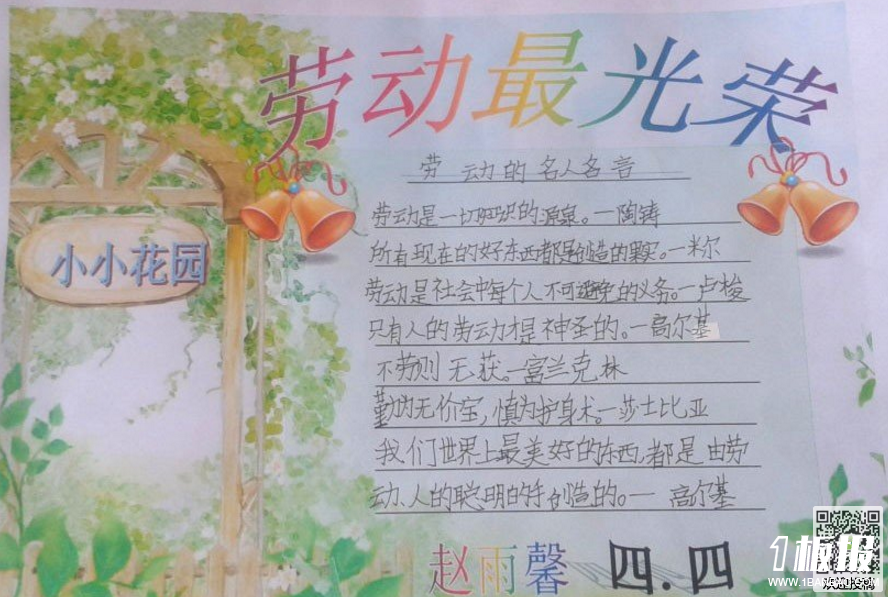 劳动最光荣
劳动的名人名言
小小花园
劳动是一切知识的源泉。—陶铸
所有现在的好东西都是创造的果实。—米尔
劳动是社会中每个人不可避免的义务。—卢梭
只有人的劳动才是神圣的。—高尔基
不劳则无获。—富兰克林
勤为无价宝,慎为护身术。—莎士比亚
我们世界上最美好的东西,都是由劳
动、人的聪明的手创造的。— 高尔基
赵雨馨 四.四
1板报
WWW.1BANBAO.COM